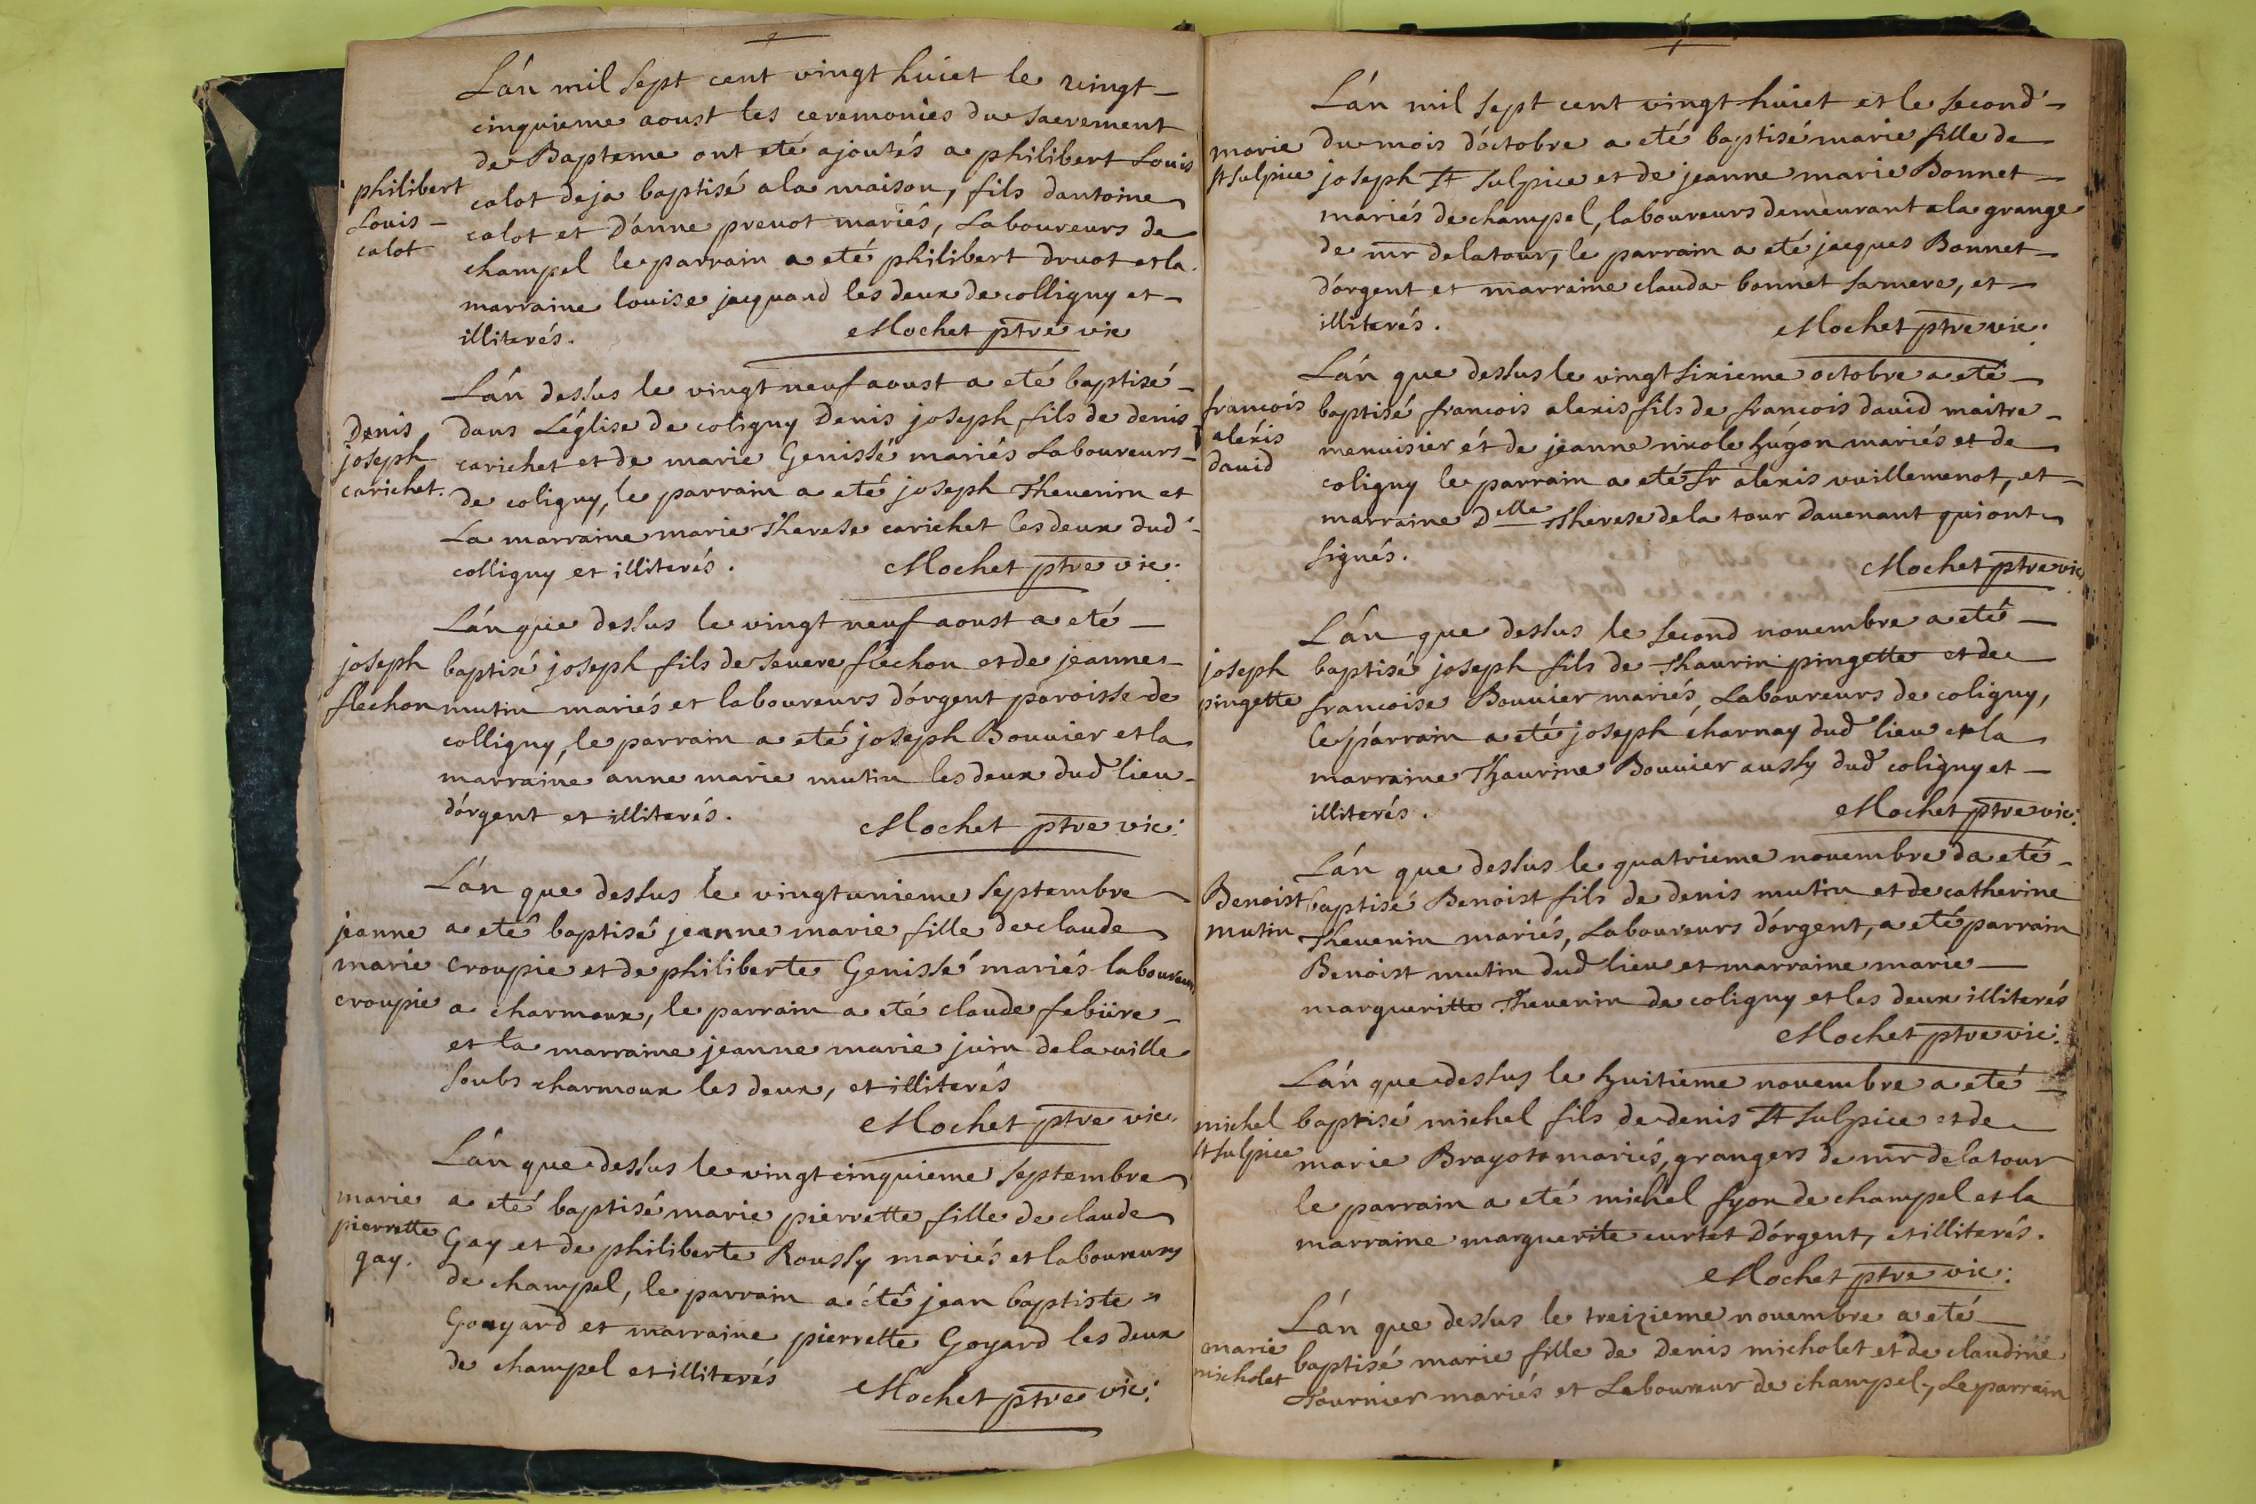 Lán mil sept cent vingt huict le vingt-
cinquieme aoust les ceremonies du sacrement
de Bapteme ont eté ajoutés a philibert Louis
philibert
Louis-
calot
calot deja baptisé ala maison, fils dantoine
calot et Dánne prevot mariés, Laboureurs de
champel le parrain a eté philibert druot et la
marraine louise jacquand les deux de colligny et-
illiterés. Mochet ptre vic
Lán dessus le vingt neuf aoust a eté baptisé-
Denis
joseph
carichet.
dans Léglise de coligny Denis joseph fils de denis
carichet et de marie Genissé mariés Laboureurs-
de coligny, le parrain a eté joseph Thevenin et
La marraine marie Therese carichet les deux dud
colligny et illiterés. Mochet ptre vic:
Lán que dessus le vingt neuf aoust a eté-
joseph
flechon
baptisé joseph fils de severe flechon et de jeanne-
mutin mariés et laboureurs dórgent paroisse de
colligny, le parrain a eté joseph Bouvier et la
marraine anne marie mutin les deux dud lieu-
dórgent et illiterés. Mochet ptre vic:
Lán que dessus le vingtunieme septembre
jeanne
marie
croupie
a eté baptisé jeanne marie fille de claude
croupie et de philiberte Genissé mariés laboureurs
a charmoux, le parrain a eté claude febüre-
et la marraine jeanne marie juin de la ville
soubs charmoux les deux, et illiterés
Mochet ptre vic.
Lán que dessus le vingt cinquieme septembre
marie
pierrette
gay.
a eté baptisé marie pierrette fille de claude
Gay et de philiberte Roussy mariés et laboureurs
de champel, le parrain a été jean baptiste
Goayard et marraine pierrette Goyard les deux
de champel et illiterés Mochet ptre vic:
Lán mil sept cent vingt huict et le second-
marie
st sulpice
du mois dóctobre a eté baptisé marie fille de
joseph St sulpice et de jeanne marie Bonnet-
mariés de champel, laboureurs demeurant a la grange
de mr delatour, le parrain a eté jacques Bonnet-
dórgent et marraine clauda bonnet sa mere, et-
illiterés. Mochet ptre vic:
Lán que dessus le vingt sixieme octobre a eté-
francois
alexis
david
baptisé francois alexis fils de francois david maitre-
menuisier ét de jeanne nicole húgon mariés et de
coligny le parrain a eté sr alexis vuillemenot, et-
marraine Delle Therese de la tour davenant qui ont
signés. Mochet ptre vic
Lán que dessus le second novembre a eté-
joseph
pingette
baptisé joseph fils de Thaurin pingette et de
francoise Bouvier mariés, Laboureurs de coligny,
le parrain a eté joseph charnay dud lieu et la
marraine Thaurine Bouvier aussy dud coligny et-
illiterés. Mochet ptre vic:
Lán que dessus le quatrieme novembre da eté-
Benoist
mutin
baptisé Benoist fils de denis mutin et de catherine
Thevenin mariés, Laboureurs dórgent, a eté parrain
Benoist mutin dud lieu et marraine marie-
margueritte Thevenin de coligny et les deux illiterés
Mochet ptre vic:
Lán que dessus le huitieme novembre a eté-
michel
st sulpice
baptisé michel fils de denis St sulpice et de
marie Brayot mariés, grangers de mr delatour
le parrain a eté michel syon de champel et la
marraine marguerite curtet Dórgent, et illiterés.
Mochet ptre vic:
Lán que dessus le treizieme novembre a eté-
marie
micholet
baptisé marie fille de Denis micholet et de claudine
Tournier mariés et Laboureur de champel, Le parrain